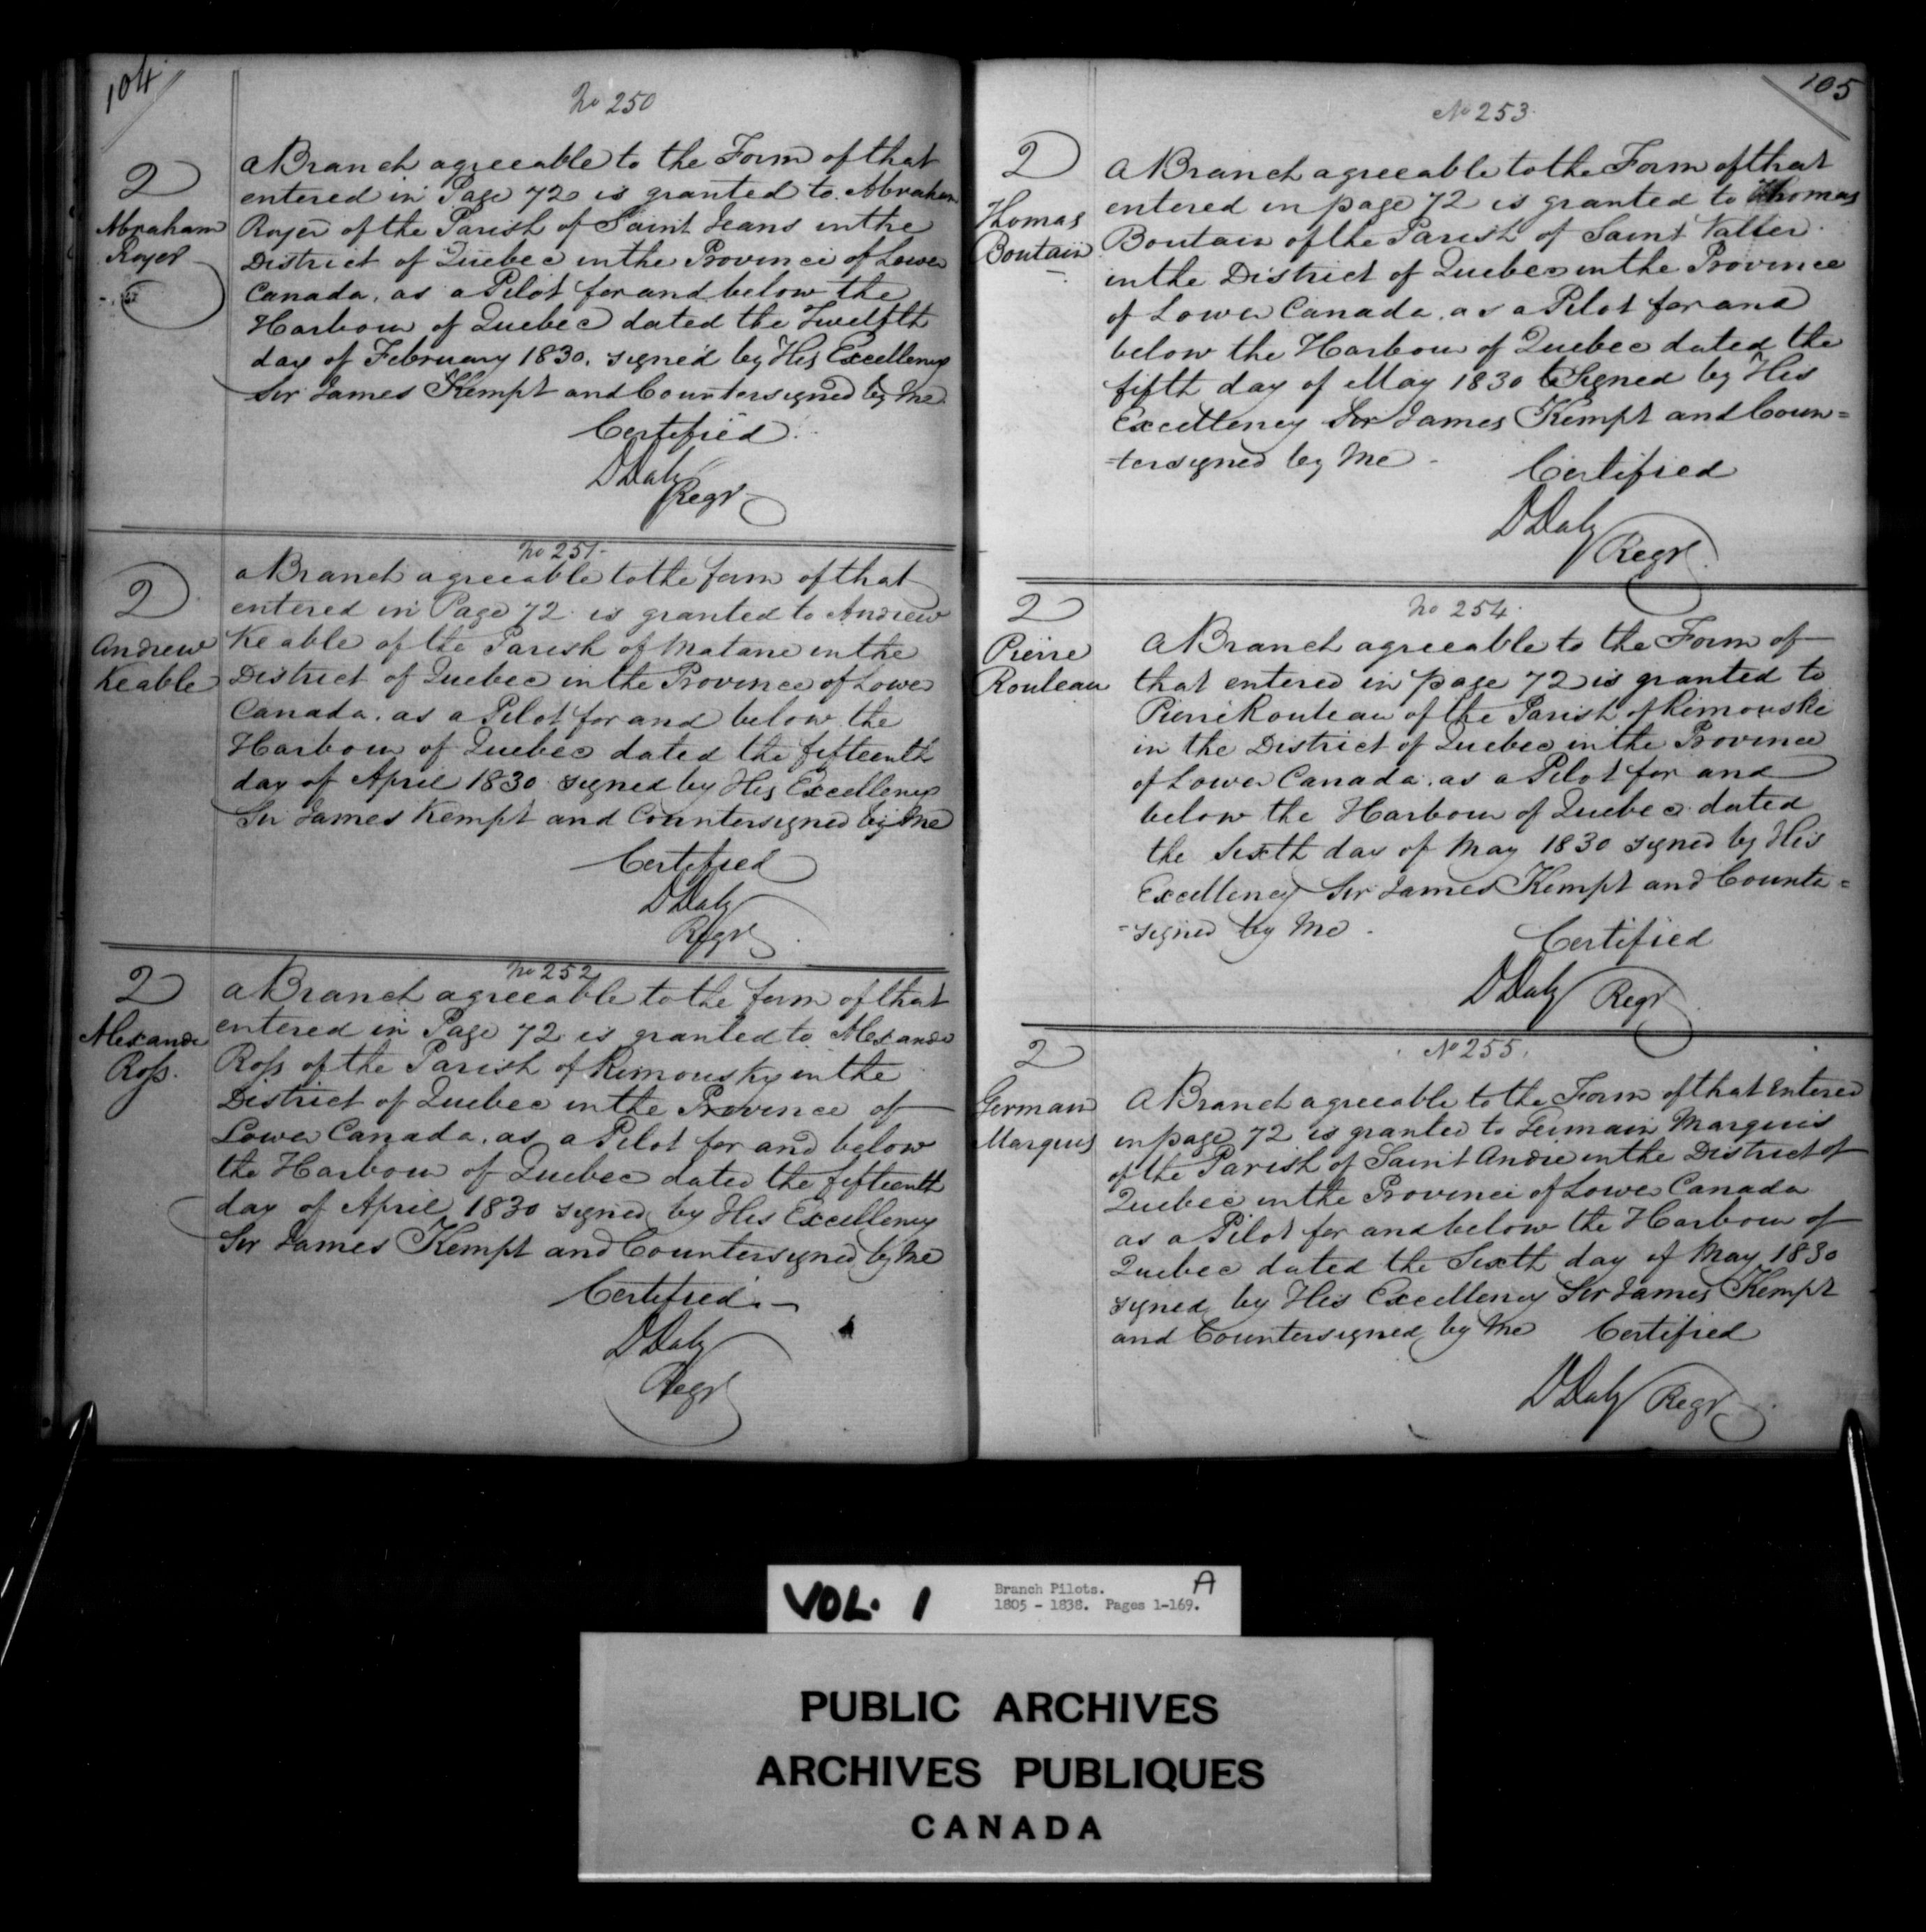 104
No 250
2
Abraham
Royer
a Branch agreeable to the Form of that
entered in Page 72 is granted to Abraham
Royer of the Parish of Saint Jeans in the
District of Quebec in the Province of Lower
Canada, as a Pilot for and below the
Harbour of Quebec dated the Twelfth
day of February 1830. signed by His Excellency
Sir James Kempt and Countersigned by Me
Certified
DDaly
Regr
No 251
2
Andrew
Keable
a Branch agreeable to the form of that
entered in Page 72 is granted to Andrew
Keable of the Parish of Matane in the
District of Quebec in the Province of Lower
Canada, as a Pilot for and below the
Harbour of Quebec dated the fifteenth
day of April 1830 signed by His Excellency
Sir James Kempt and Countersigned by Me
Certified
DDaly
Regr
No 252
2
Alexander
Ross.
a Branch agreeable to the form of that
entered in Page 72 is granted to Alexander
Ross of the Parish of Rimousky in the
District of Quebec in the Province of
Lower Canada, as a Pilot for and below
the Harbour of Quebec dated the fifteenth
day of April 1830 signed by His Excellency
Sir James Kempt and Countersigned by Me
Certified
DDaly
Regr
105
No 253
2
Thomas
Boutain
A Branch agreeable to the Form of that
entered in page 72 is granted to Thomas
Boutain of the Parish of Saint Vallier
in the District of Quebec in the Province
of Lower Canada, as a Pilot for and
below the Harbour of Quebec dated the
fifth day of May 1830 Signed by His
Excellency Sir James Kempt and Coun=
-tersigned by Me
Certified
DDaly
Regr
No 254
2
Pierre
Rouleau
A Branch agreeable to the Form of
that entered in page 72 is granted to
Pierre Rouleau of the Parish of Rimouski
in the District of Quebec in the Province
of Lower Canada, as a Pilot for and
below the Harbour of Quebec dated
the Sixth day of May 1830 signed by His
Excellency Sir James Kempt and Counter=
=signed by Me
Certified
DDaly Regr
No 255
2
Germain
Marquis
A Branch agreeable to the Form of that Entered
in page 72 is granted to Germain Marquis
of the Parish of Saint Andre in the District of
Quebec in the Province of Lower Canada
as a Pilot for and below the Harbour of
Quebec dated the Sixth day of May 1830
signed by His Excellency Sir James Kempt
and Countersigned by Me Certified
DDaly Regr
VOL. 1
Branch Pilots. A
1805 - 1838. Pages 1-169.
PUBLIC ARCHIVES
ARCHIVES PUBLIQUES
CANADA